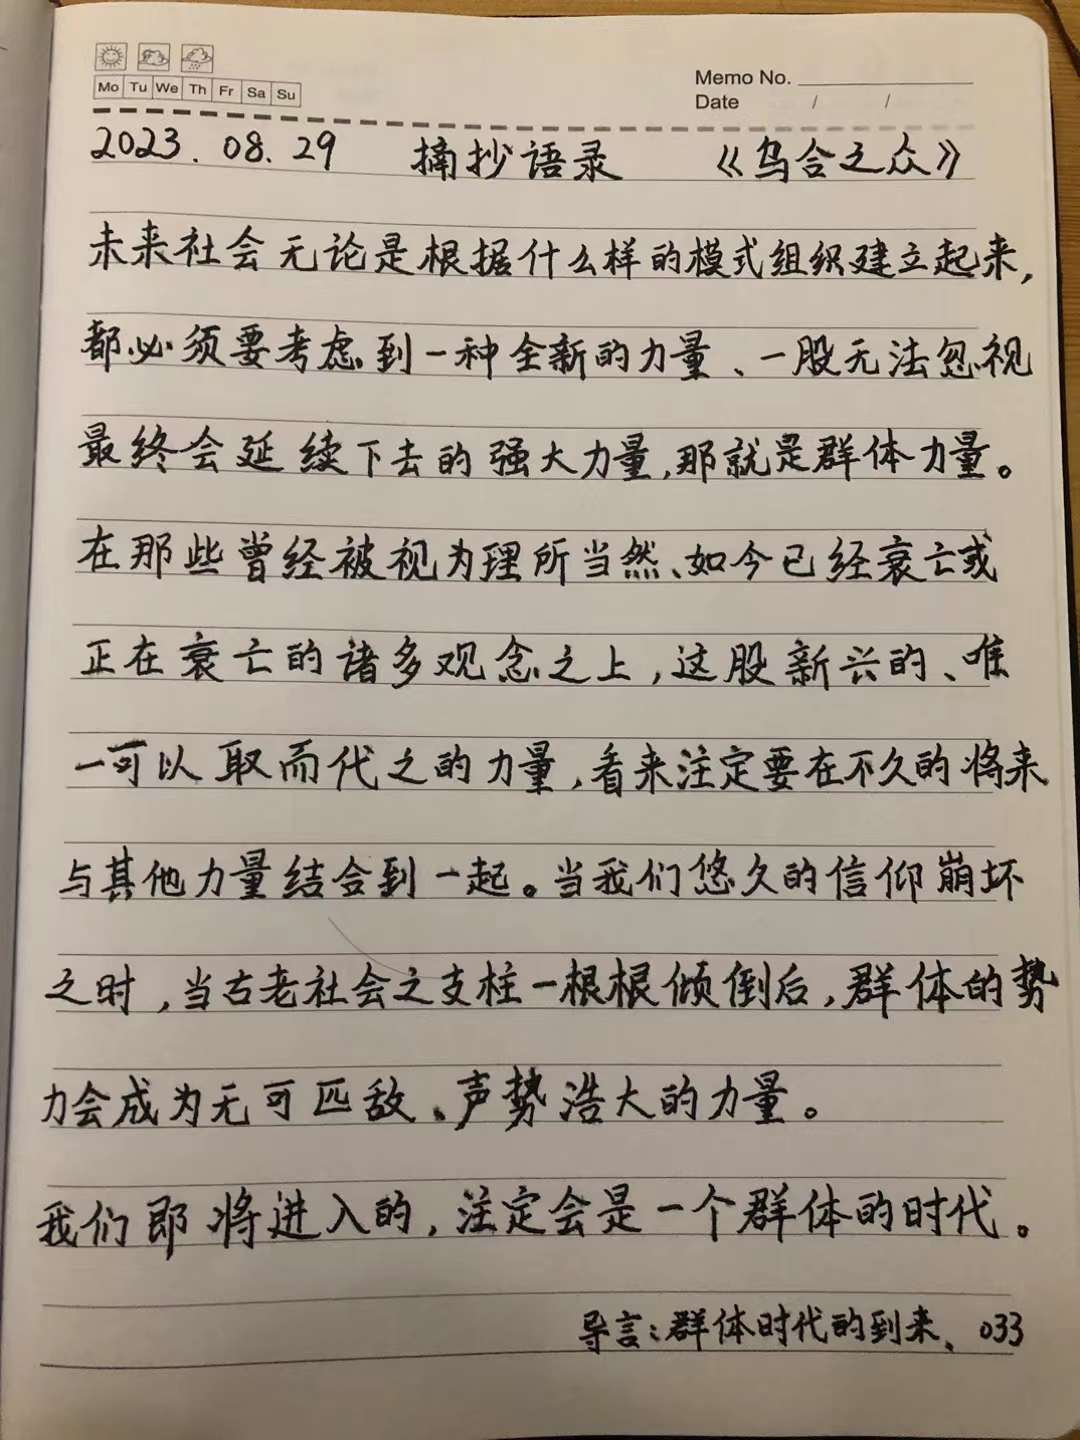 Mo Tu We Th Fr Sa Su
Memo No.
Date / /
2023.08.29 摘抄语录 《乌合之众》
未来社会无论是根据什么样的模式组织建立起来,
都必须要考虑到一种全新的力量、一股无法忽视
最终会延续下去的强大力量,那就是群体力量。
在那些曾经被视为理所当然、如今已经衰亡或
正在衰亡的诸多观念之上,这股新兴的、唯
一可以取而代之的力量,看来注定要在不久的将来
与其他力量结合到一起。当我们悠久的信仰崩坏
之时,当古老社会之支柱一根根倾倒后,群体的势
力会成为无可匹敌、声势浩大的力量。
我们即将进入的,注定会是一个群体的时代。
导言:群体时代的到来、033